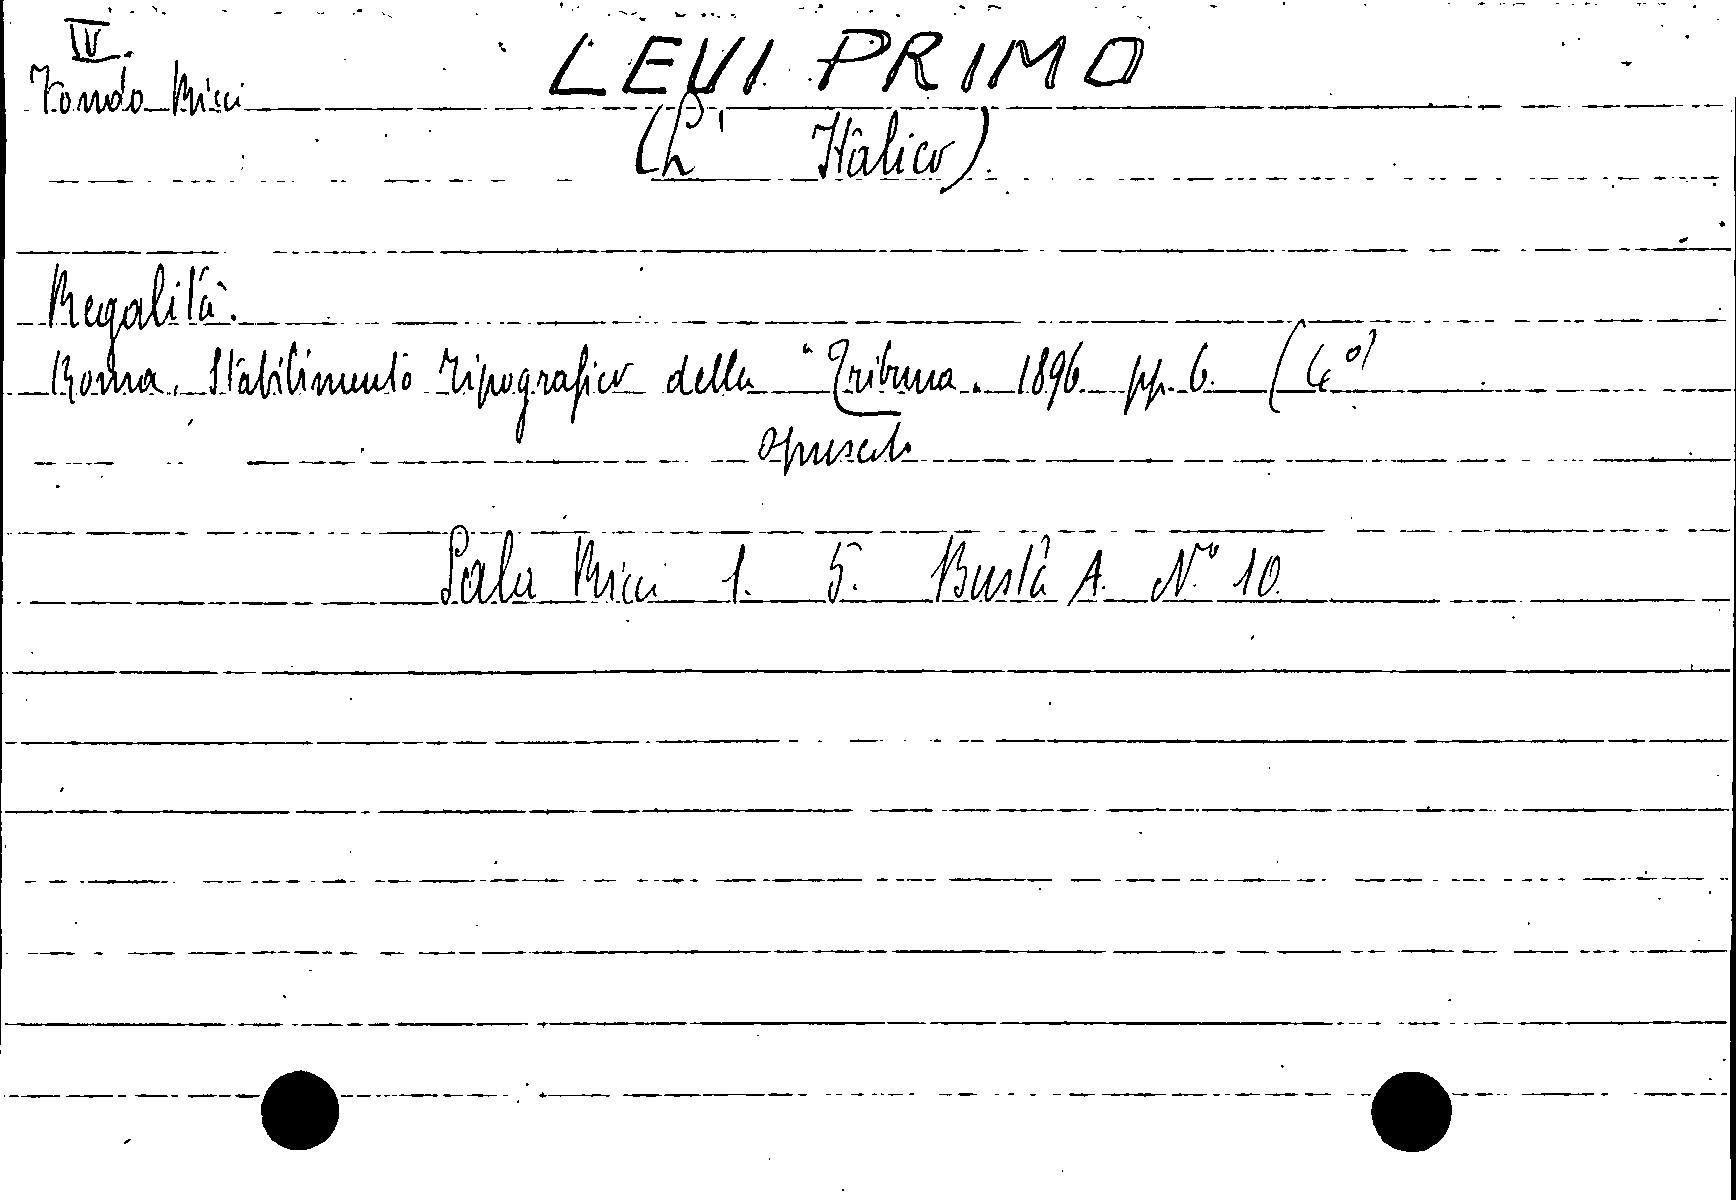 IV.
LEVI PRIMO
Fondo Ricci
(L' Italico).
Regalità.
Roma. Stabilimento Tipografico della "Tribuna. 1896 pp. 6. (4°)
opuscolo
Sala Ricci 1. 5. Busta A. N.° 10.